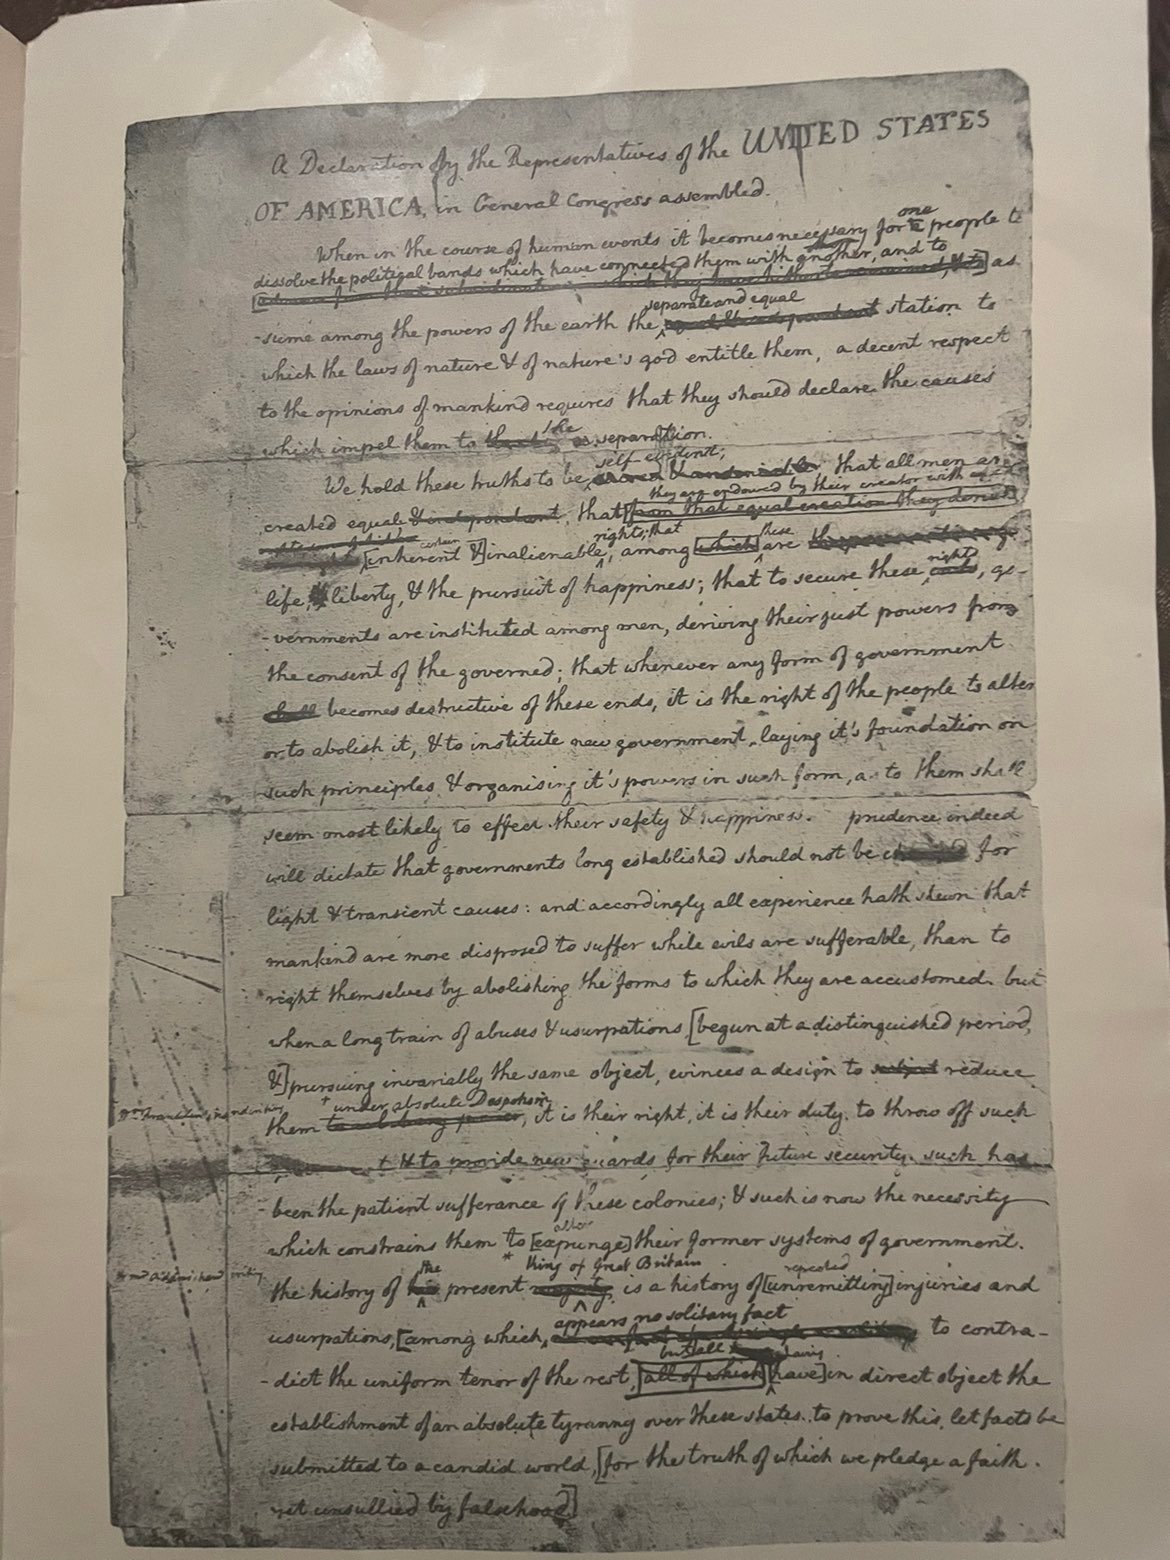 A Declaration by the Representatives of the UNITED STATES
OF AMERICA, in General Congress assembled.
When in the course of human events it becomes necessary for one people to
dissolve the political bands which have connected them with another, and to
as
separate and equal
-sume among the powers of the earth the station to
which the laws of nature & of nature's god entitle them, a decent respect
to the opinions of mankind requires that they should declare the causes
which impel them to the separation.
self-evident;
We hold these truths to be sacred & undeniable that all men are
they are endowed by their creator with
created equal & independent, that from that equal creation they derive
rights; that these
certain
[inherent &] inalienable, among which are
rights
life, liberty, & the pursuit of happiness; that to secure these ends, go-
-vernments are instituted among men, deriving their just powers from
the consent of the governed; that whenever any form of government
shall becomes destructive of these ends, it is the right of the people to alter
or to abolish it, & to institute new government, laying it's foundation on
such principles & organising it's powers in such form, as to them shall
seem most likely to effect their safety & happiness. prudence indeed
will dictate that governments long established should not be changed for
light & transient causes: and accordingly all experience hath shewn that
mankind are more disposed to suffer while evils are sufferable, than to
right themselves by abolishing the forms to which they are accustomed. but
when a long train of abuses & usurpations, [begun at a distinguished period,
&] pursuing invariably the same object, evinces a design to subject reduce
Dr. Franklin's handwriting
* under absolute Despotism
them it is their right, it is their duty, to throw off such
& to provide new guards for their future security. such has
-been the patient sufferance of these colonies; & such is now the necessity
alter
which constrains them to [expunge] their former systems of government.
* king of Great Britain
Mr. Adams' handwriting
the repeated
the history of his present majesty, is a history of [unremitting] injuries and
appears no solitary fact
usurpations, [among which, to contra-
but all having
-dict the uniform tenor of the rest, [all of which] [have] in direct object the
establishment of an absolute tyranny over these states. to prove this, let facts be
submitted to a candid world, [for the truth of which we pledge a faith
yet unsullied by falsehood]